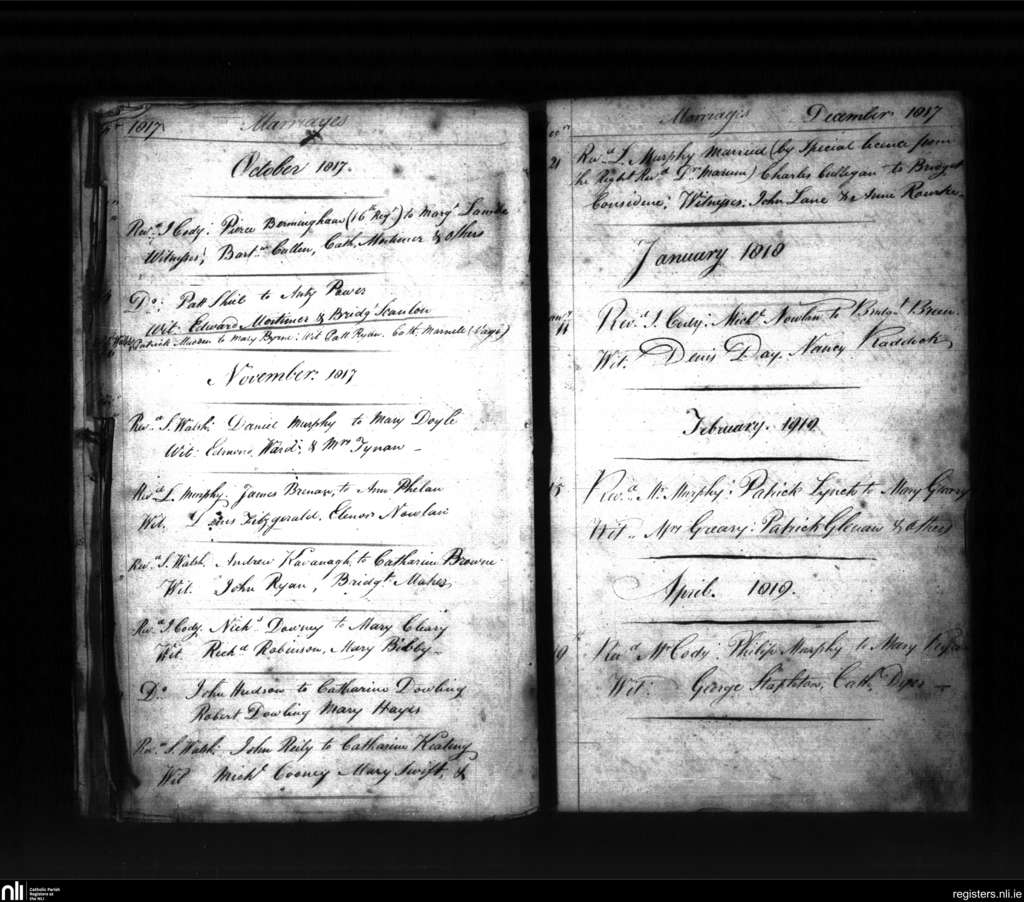 1817 Marriages
October 1817.
Revd J. Cody: Pierce Bermingham (16th Regt) to Margt
Witnesses; Bartw Cullen, Cath. Mortimer & others
Do: Patt Shiel to Anty Power
Wit: Edward Mortimer & Bridgt Scanlon
Patrick to Mary Byrne; Wit Patt Ryan. Cath.
November. 1817
Revd S. Walsh: Daniel Murphy to Mary Doyle
Wit: Edmond Ward; & Mrs Tynan
Revd L. Murphy: James Brenan, to Ann Phelan
Wit, Fitzgerald, Elenor Nowlan
Revd S. Walsh, Andrew Kavanagh, to Catharine Browne
Wit. John Ryan, Bridgt Maher
Revd J. Cody. Nichs Downey to Mary Cleary
Wit. Richd Robinson, Mary Bibby
Do John Hudson to Catharine Dowling
Robert Dowling Mary Hayes
Revd S. Walsh: John Reily to Catharine Keating
Wit Michl Cooney Mary Swift, &
Marriages December 1817
21 Revd L. Murphy Married (by Special licence from
the Right Revd Dr Marum) Charles to Bridget
Considine; Witnesses: John Lane & Anne
January 1818
11 Revd J. Cody: Michl Nowlan to Bridgt Breen.
Wit. Denis Day, Nancy
February. 1818
15 Revd Mr Murphy: Patrick Lynch to Mary Geary
Wit.. Mrs Greary: Patrick & others
April. 1818.
19 Revd Mr Cody: Philip Murphy to Mary
Wit: George Stapleton, Cath.
nli
Catholic Parish
Registers at
the NLI
registers.nli.ie